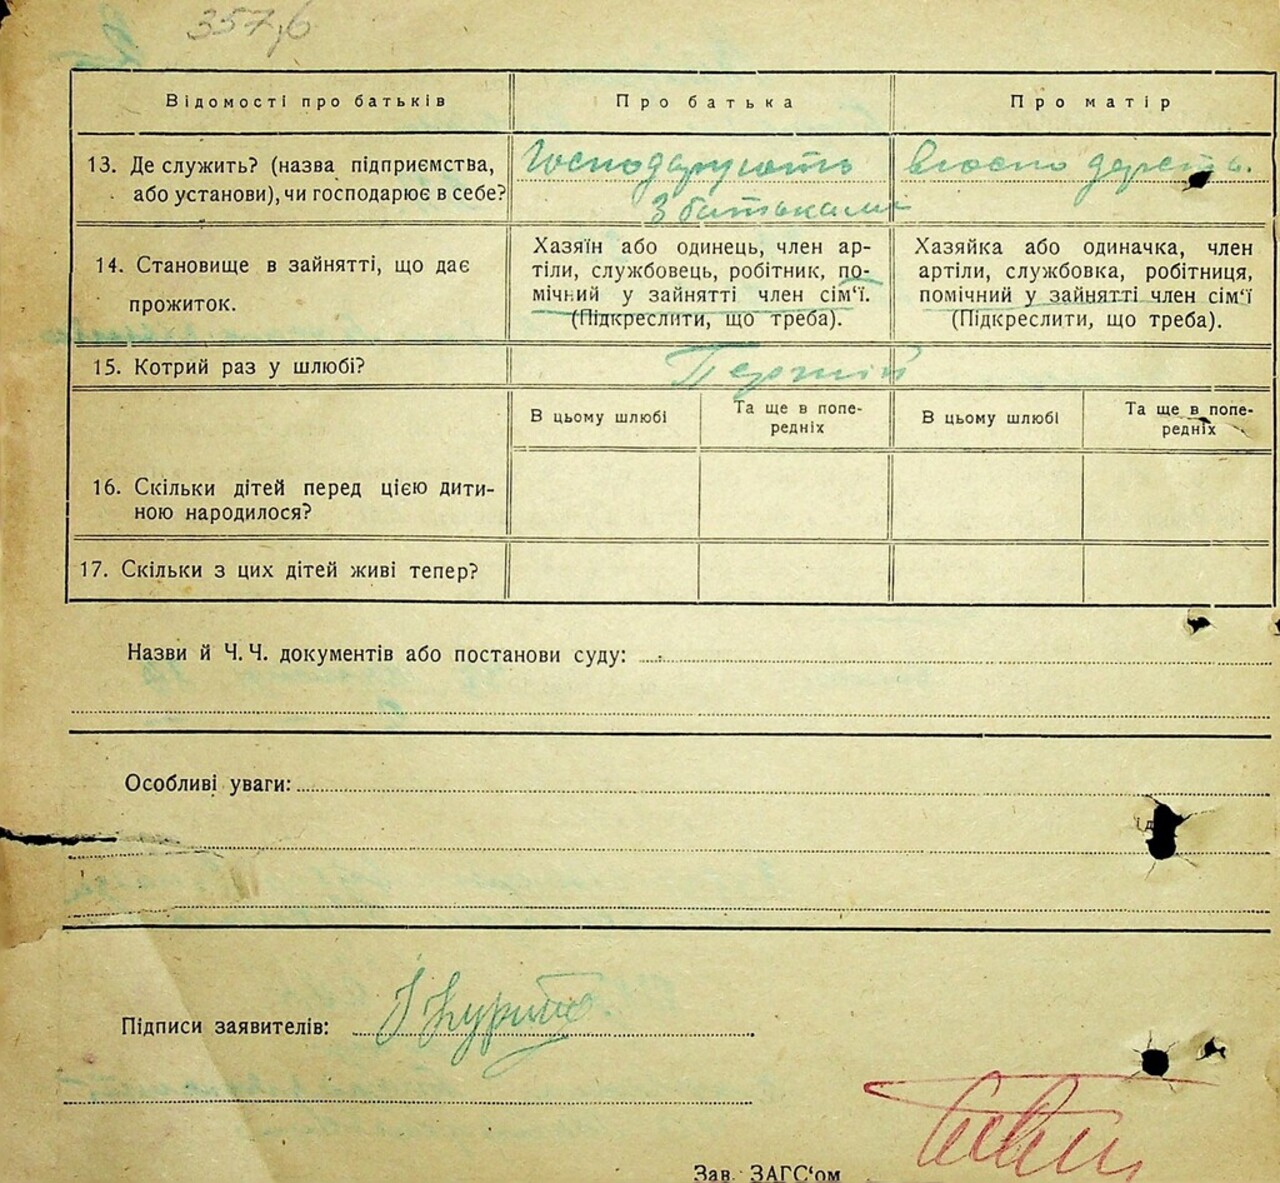 357,6
Відомості про батьків
Про батька
Про матір
13. Де служить? (назва підприємства,
або установи), чи господарює в себе?
Господарують
з батьками
14. Становище в зайнятті, що дає
прожиток.
Хазяїн або одинець, член ар-
тіли, службовець, робітник, по-
мічний у зайнятті член сім‘ї.
(Підкреслити, що треба).
Хазяйка або одиначка, член
артіли, службовка, робітниця,
помічний у зайнятті член сім‘ї
(Підкреслити, що треба).
15. Котрий раз у шлюбі?
Перший
В цьому шлюбі
Та ще в попе-
редніх
В цьому шлюбі
Та ще в попе-
редніх
16. Скільки дітей перед цією дити-
ною народилося?
17. Скільки з цих дітей живі тепер?
Назви й Ч. Ч. документів або постанови суду:
Особливі уваги:
Підписи заявителів:
Зав. ЗАГС‘ом